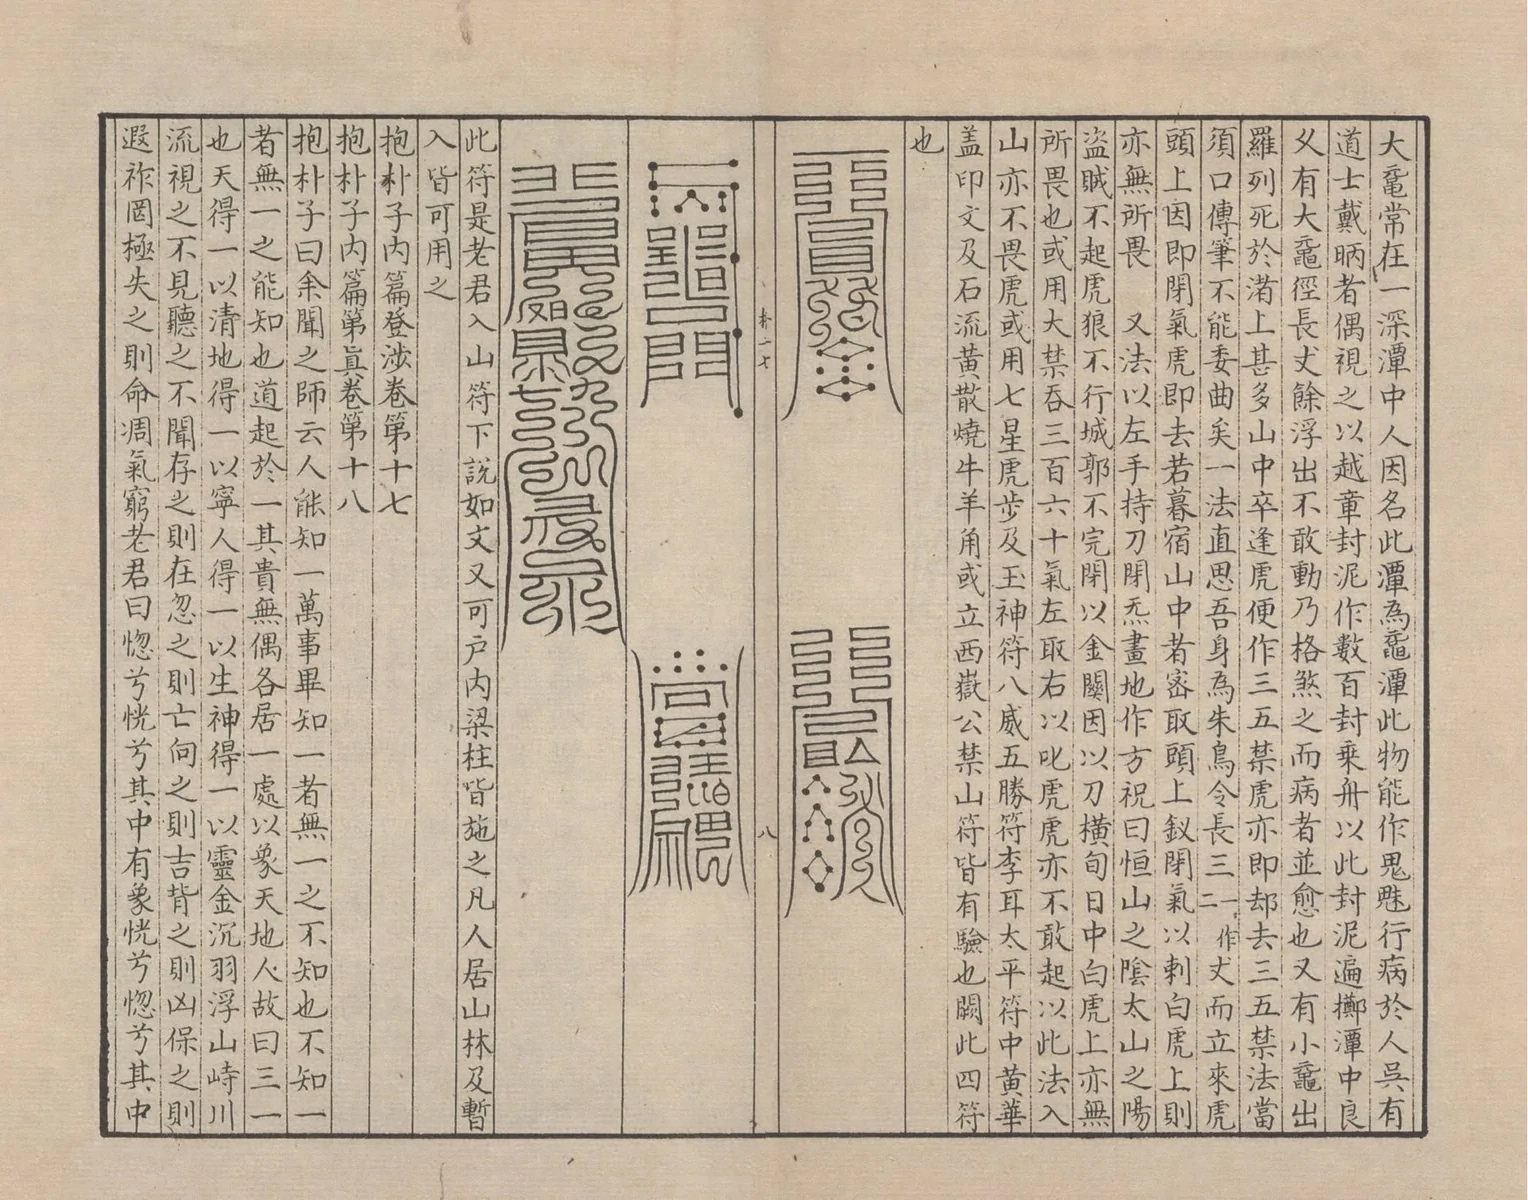 大黿常在一深潭中人因名此潭為黿潭此物能作鬼魅行病於人吳有
道士戴昞者偶視之以越章封泥作數百封乗舟以此封泥遍擲潭中良
乆有大黿徑長丈餘浮出不敢動乃格煞之而病者並愈也又有小黿出
羅列死於渚上甚多山中卒逢虎便作三五禁虎亦即却去三五禁法當
須口傳筆不能委曲矣一法直思吾身為朱鳥令長三一作二丈而立來虎
頭上因即閉氣虎即去若暮宿山中者宻取頭上釵閉氣以刺白虎上則
亦無所畏 又法以左手持刀閉炁畫地作方祝曰恒山之陰太山之陽
盜賊不起虎狼不行城郭不完閉以金關因以刀橫旬日中白虎上亦無
所畏也或用大禁吞三百六十氣左取右以叱虎虎亦不敢起以此法入
山亦不畏虎或用七星虎步及玉神符八威五勝符李耳太平符中黃華
盖印文及石流黃散燒牛羊角或立西嶽公禁山符皆有驗也闕此四符
也
朴十七
八
此符是老君入山符下説如文又可户内梁柱皆施之凡人居山林及暫
入皆可用之
抱朴子内篇登涉卷第十七
抱朴子内篇第眞卷第十八
抱朴子曰余聞之師云人能知一萬事畢知一者無一之不知也不知一
者無一之能知也道起於一其貴無偶各居一處以象天地人故曰三一
也天得一以清地得一以寧人得一以生神得一以靈金沉羽浮山峙川
流視之不見聽之不聞存之則在忽之則亡向之則吉背之則凶保之則
遐祚罔極失之則命凋氣窮老君曰惚兮恍兮其中有象恍兮惚兮其中